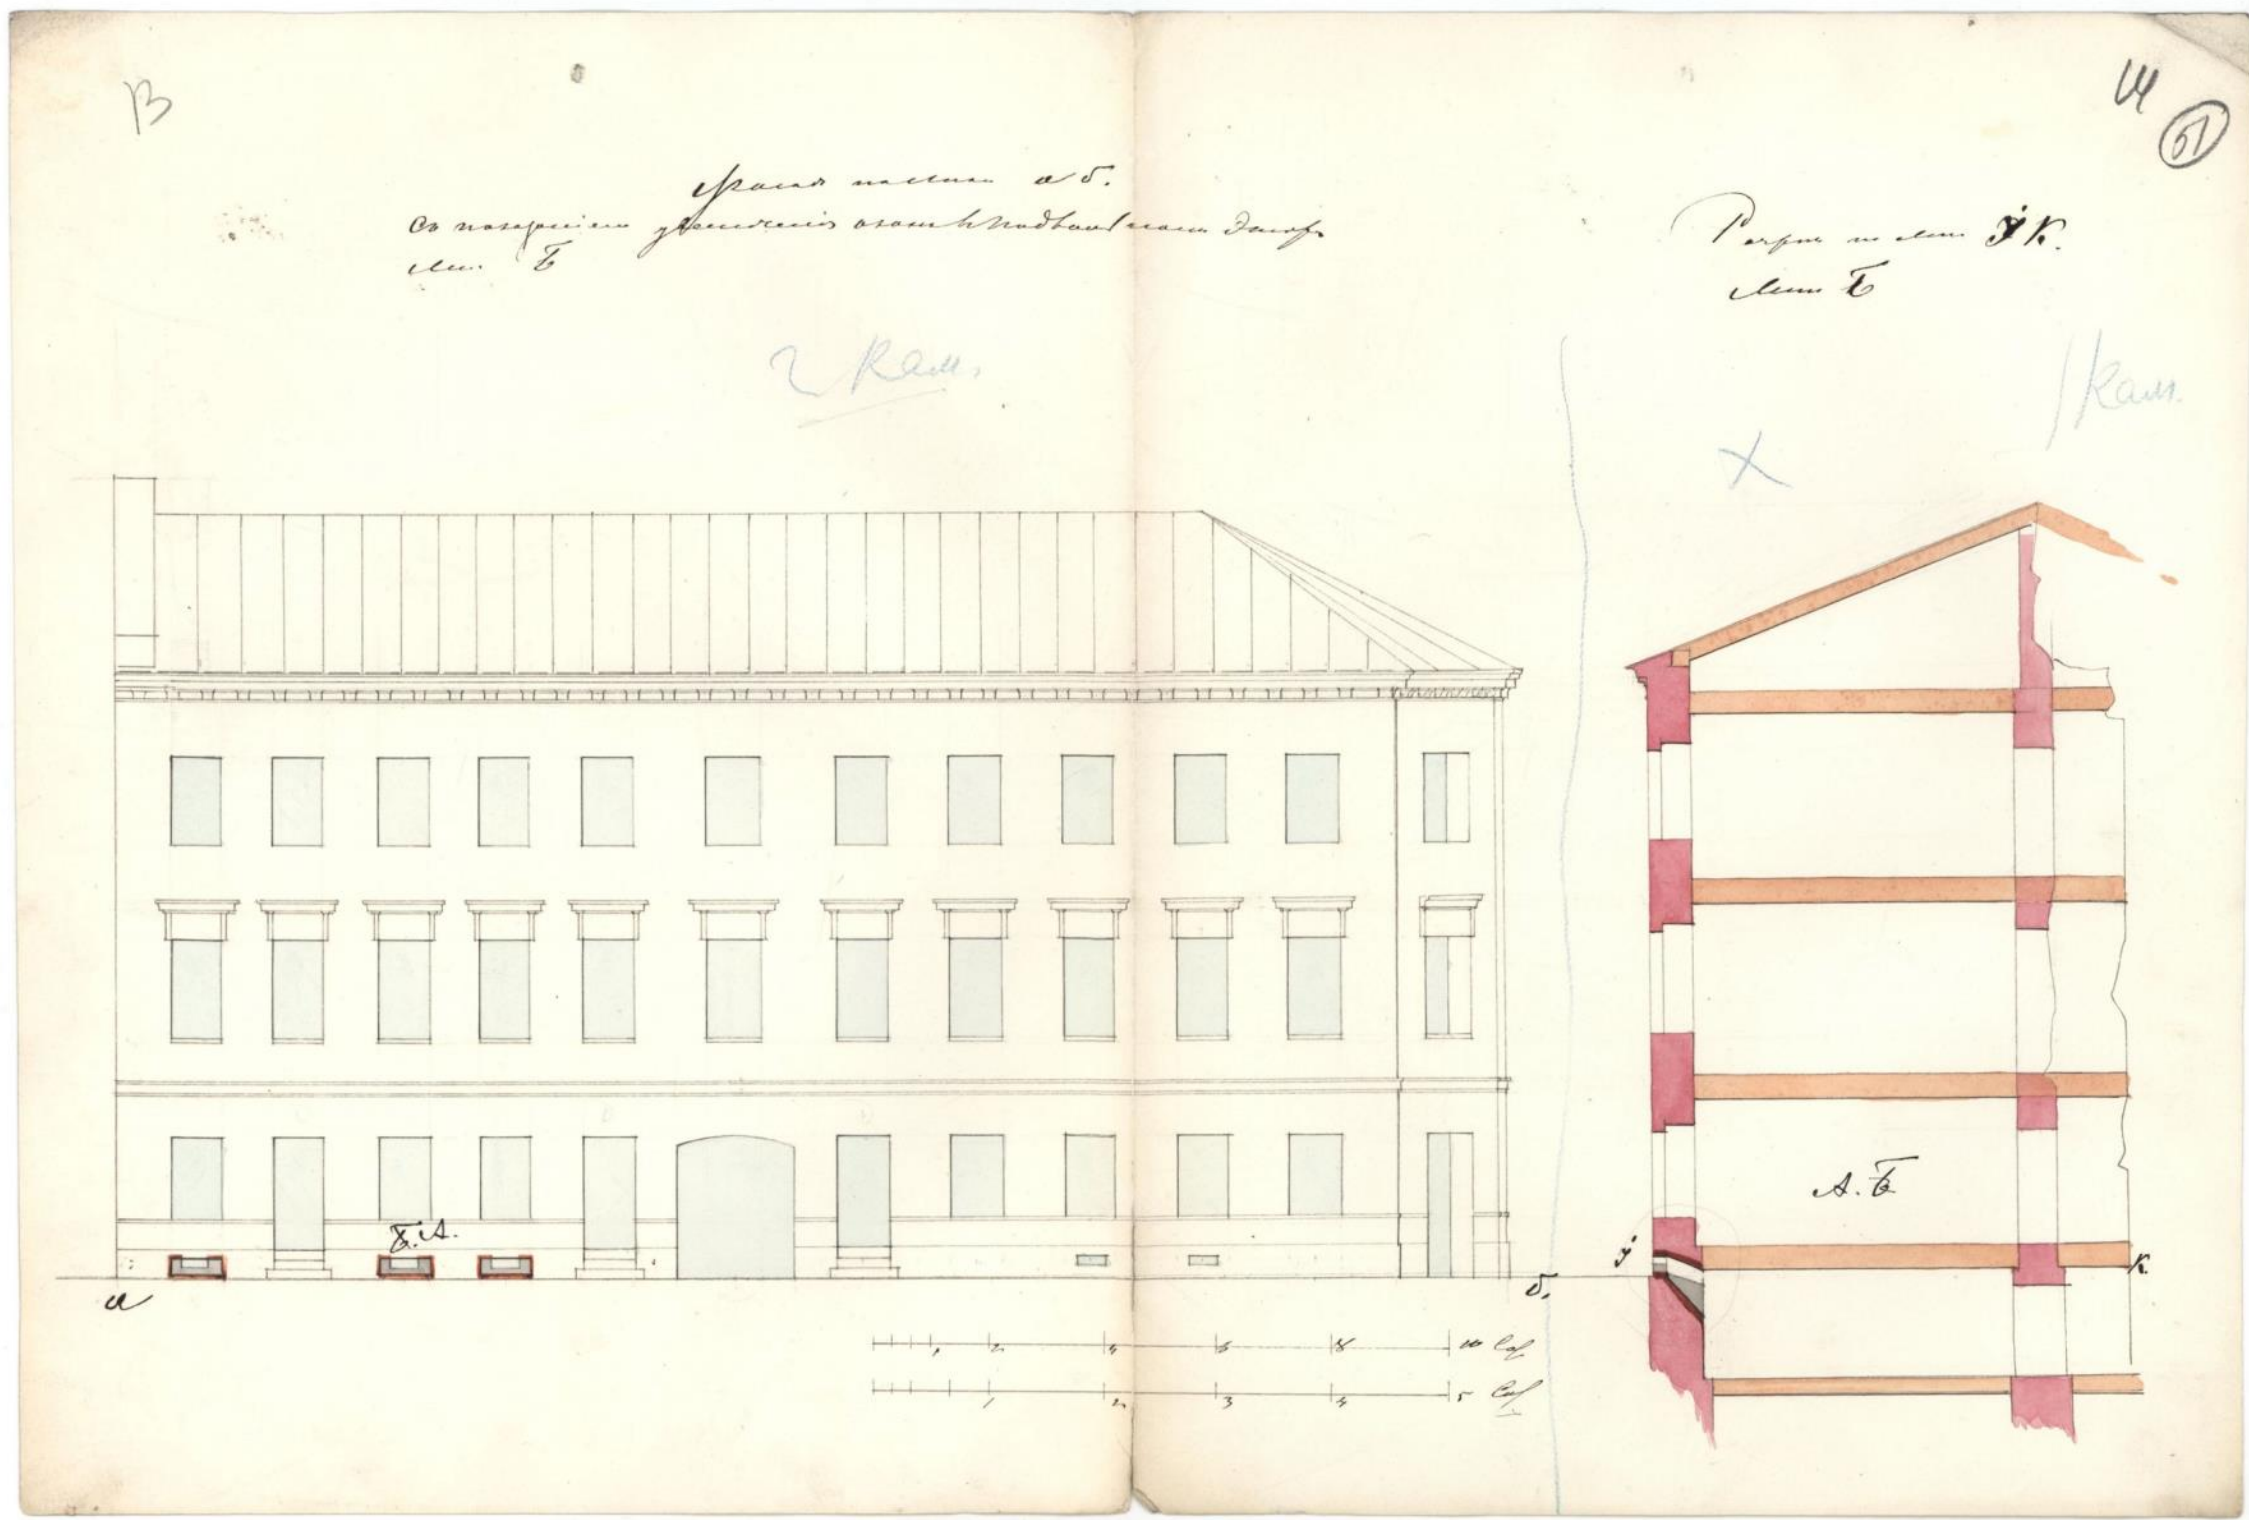 В
Щ
51
Фасад по линии а б.
Съ показаніемъ увеличенія оконъ въ подвальномъ этажѣ
Лит. Б
Разрѣзъ по линіи J К.
Лит Б
2 Кам.
1 Кам.
А. Б
Б. А.
J
К
а
б.
1 2 4 6 8 10 Саж
1 2 3 4 5 Саж